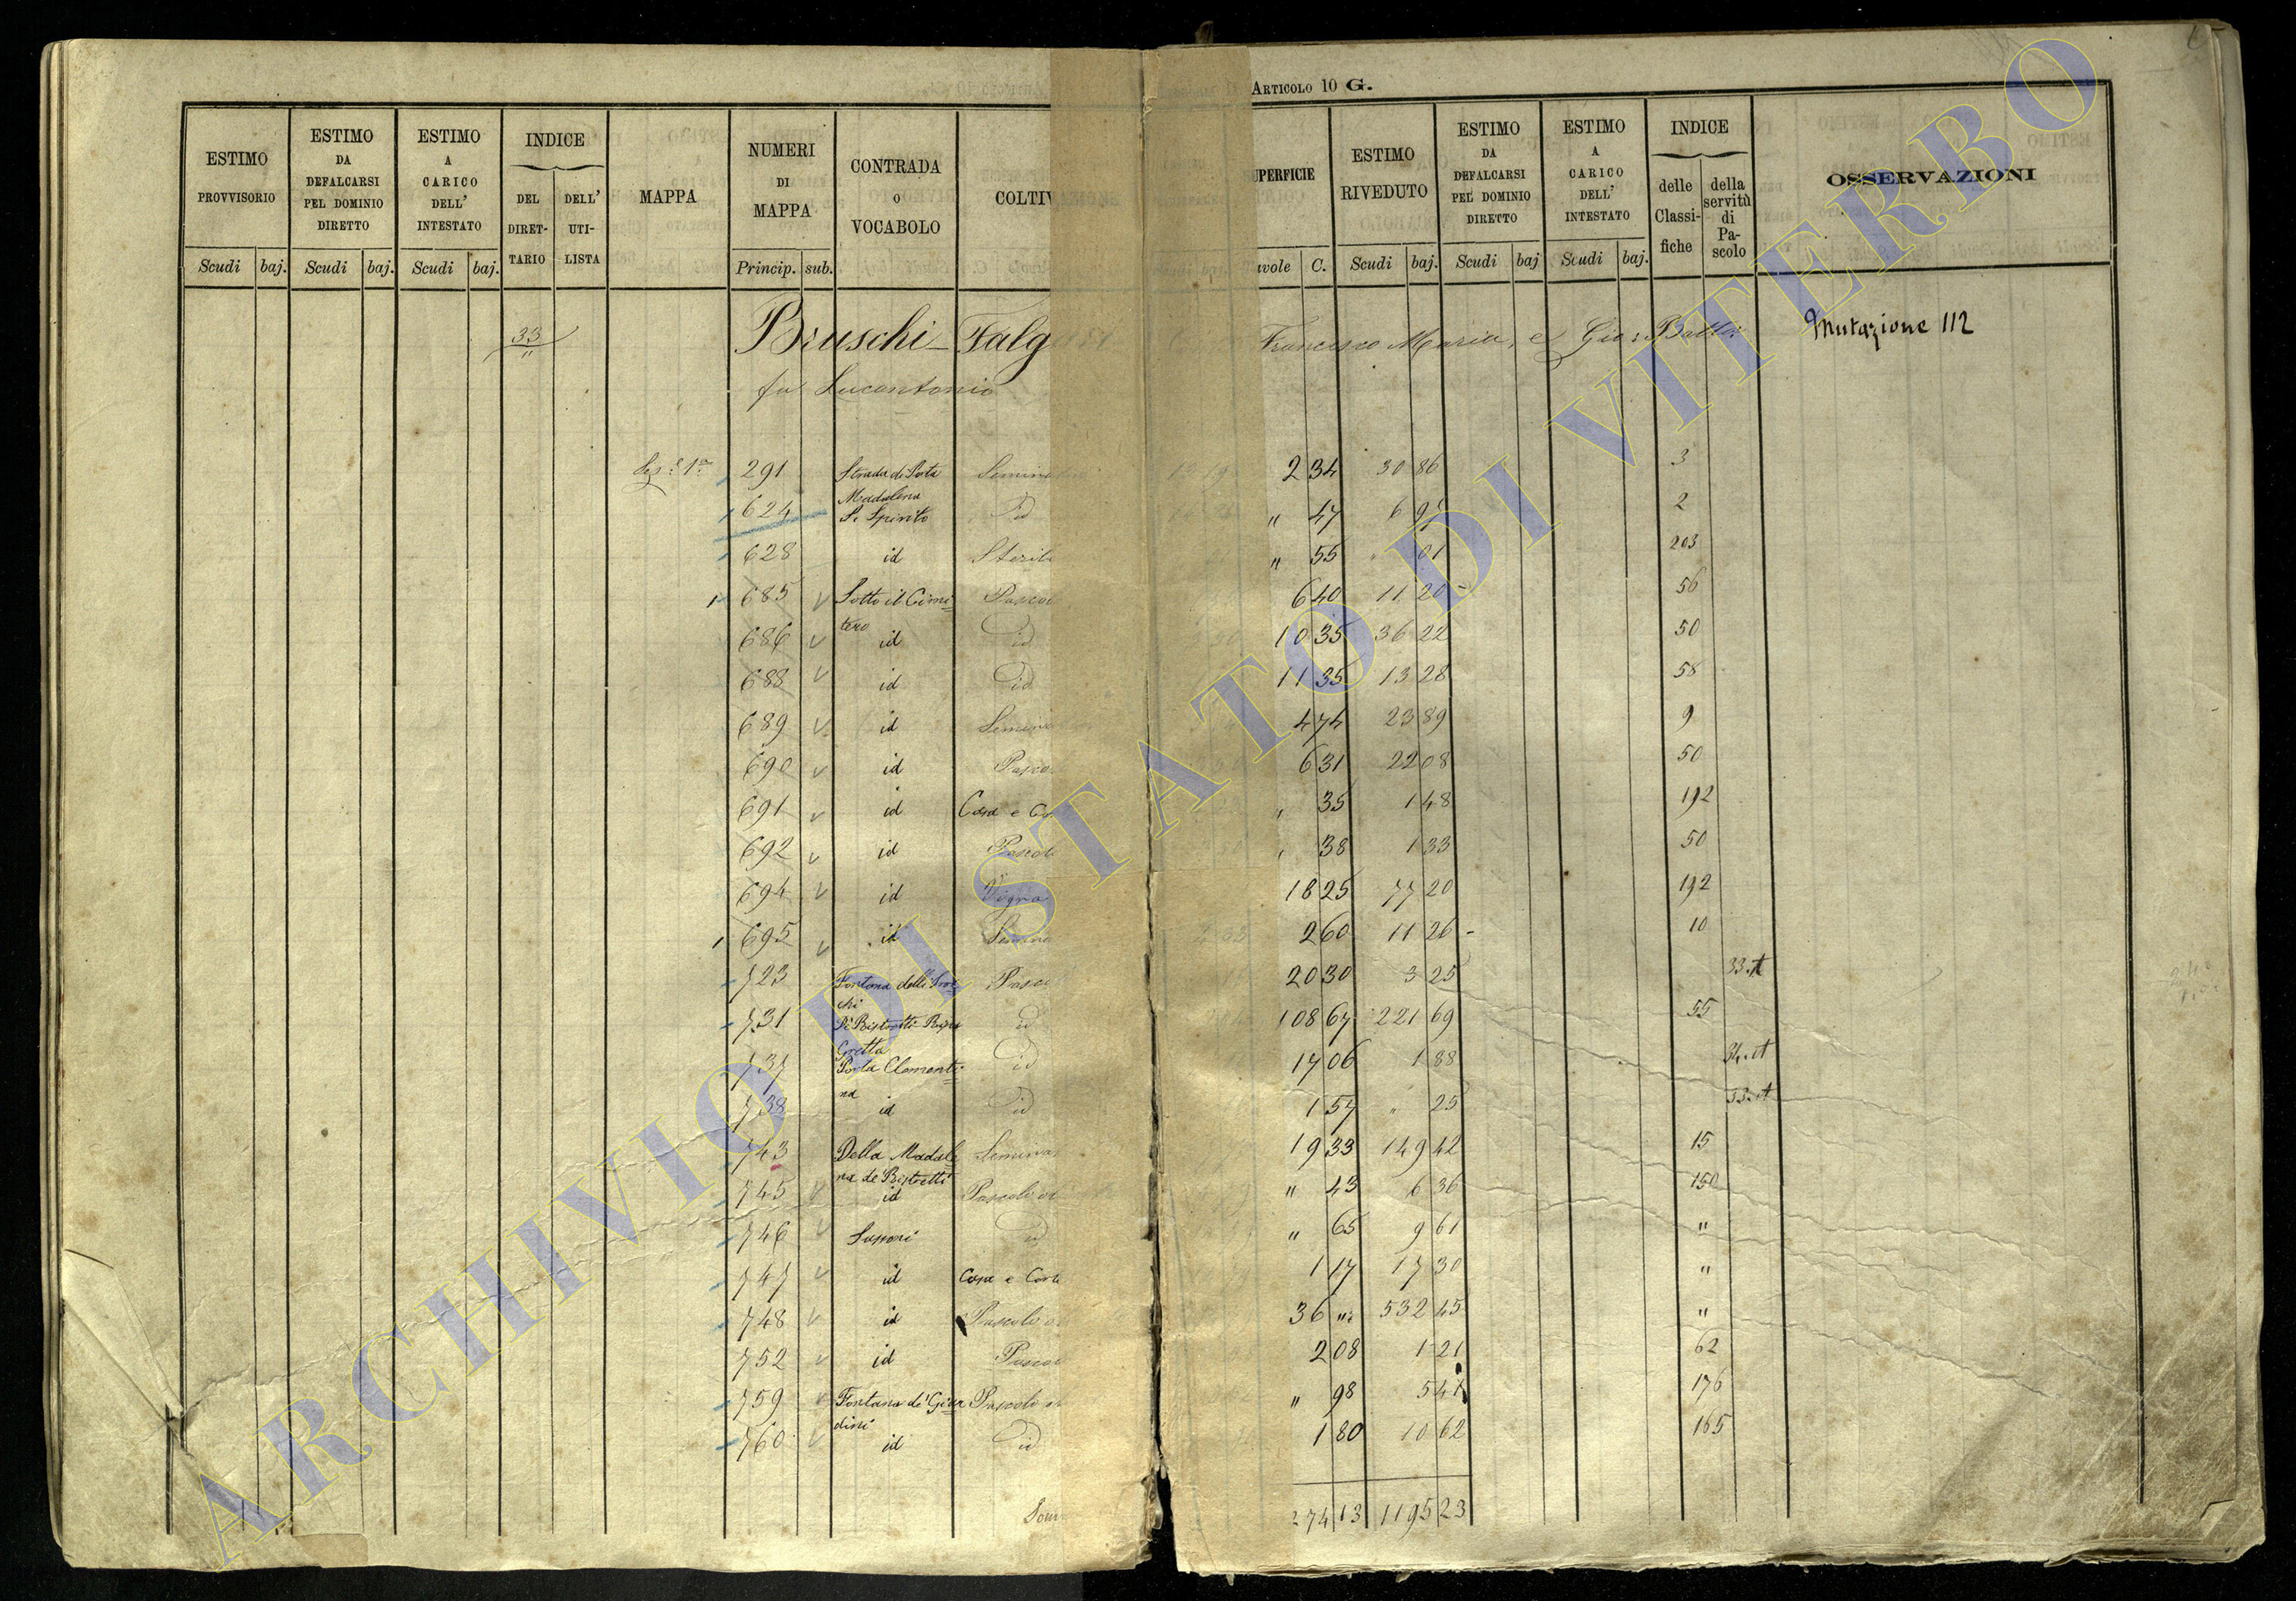 ARTICOLO 10 G.
ESTIMO PROVVISORIO
ESTIMO DA DEFALCARSI PEL DOMINIO DIRETTO
ESTIMO A CARICO DELL' INTESTATO
INDICE
DEL DIRET-TARIO
DELL' UTI-LISTA
MAPPA
NUMERI DI MAPPA
CONTRADA O VOCABOLO
COLTIV
UPERFICIE
ESTIMO RIVEDUTO
ESTIMO DA DEFALCARSI PEL DOMINIO DIRETTO
ESTIMO A CARICO DELL' INTESTATO
INDICE
delle Classi-fiche
della servitù di Pa-scolo
OSSERVAZIONI
Scudi baj. Scudi baj. Scudi baj. Princip. sub. avole C. Scudi baj. Scudi baj Scudi baj.
33 Bruschi-Falg Francesco Maria, e Gio: Batta: Mutazione 112
fu Lucantonio
Sez: 1a 291 Strada di Porta Madalena Semin 2 34 30 86 3
624 S. Spirito id " 47 6 2
628 id Steril " 55 " 01 203
685 Sotto il Cimi=tero Pascol 6 40 11 20 56
686 id id 10 35 36 22 50
688 id id 11 35 13 28 58
689 id Semina 4 74 23 89 9
690 id Pasco 6 31 22 08 50
691 id Casa e Co " 35 1 48 192
692 id Pascol " 38 1 33 50
694 id Vigna 18 25 77 20 192
695 id Semina 2 60 11 26 10
723 Fontana delli Pasco 20 30 3 25 33.
731 id 108 67 221 69 55
737 Porta Clementi=na id 17 06 1 88 34.
738 id id 1 57 " 25
743 Della Madale na de' Bistretti Semina 19 33 149 42 15
745 id Pascolo " 43 6 36 150
746 id " 65 9 61 "
747 id Casa e Corte 1 17 17 30 "
748 id Pascolo 36 " 532 45 "
752 id Pasco 2 08 1 21 62
759 Fontana de' Giar=dini Pascolo " 98 5 176
760 id id 1 80 10 62 165
Som 274 13 1195 23
ARCHIVIO DI STATO DI VITERBO